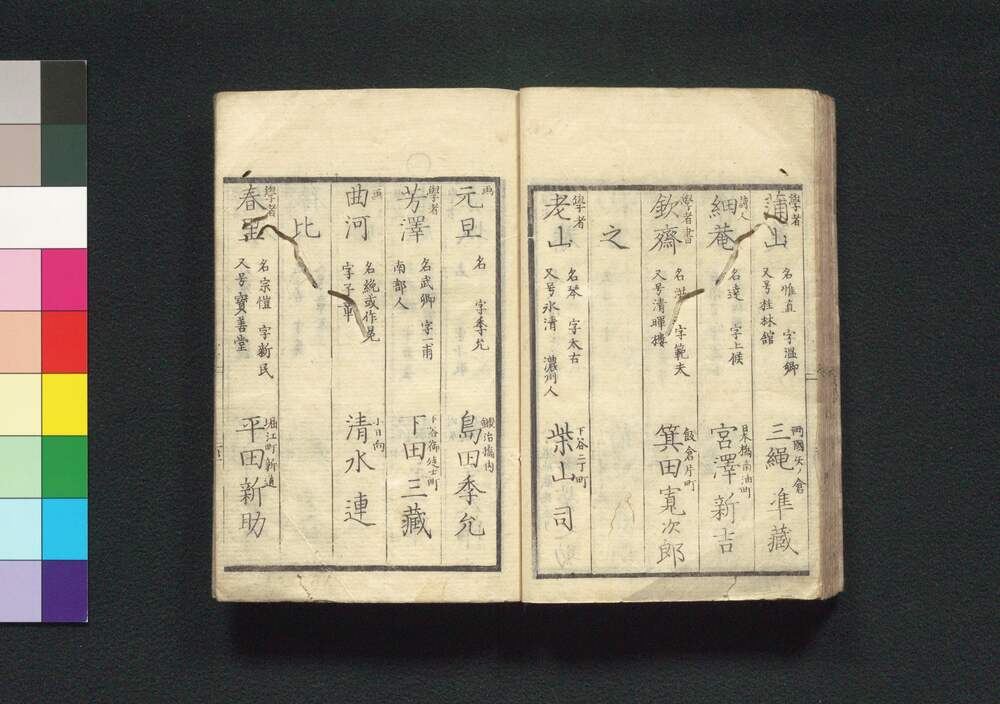 學者
蒲山
名惟直 字温卿
又号桂林舘
両國矢ノ倉
三繩準藏
詩人
細菴
名達 字上候
日本橋南油町
宮澤新吉
學者 書
欽齋
名 字範夫
又号清暉樓
飯倉片町
箕田寛次郎
之
學者
老山
名琴 字太古
又号氷清 濃州人
下谷二丁町
柴山司
画
元旦
名 字季允
鍛冶橋内
島田季允
學者
芳澤
名武卿 字一甫
南部人
下谷御徒士町
下田三藏
画
曲河
名絻或作冕
字子章
小日向
清水連
比
學者
春里
名宗愷 字新民
又号寶善堂
堀江町新道
平田新助